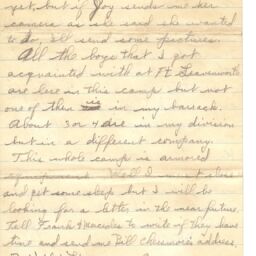 yet, but if Joy sends me her
camera as she said she wanted
to do, I'll send some pictures.
All the boys that I got
acquainted with at Ft Leavenworth
are here in this camp but not
one of them is in my barrack.
About 3 or 4 are in my division
but in a different company.
This whole camp is armored
equipment Well I must close
and get some sleep but I will be
looking for a letter in the near future.
Tell Frank & to write if they have
time and send me Bill address,